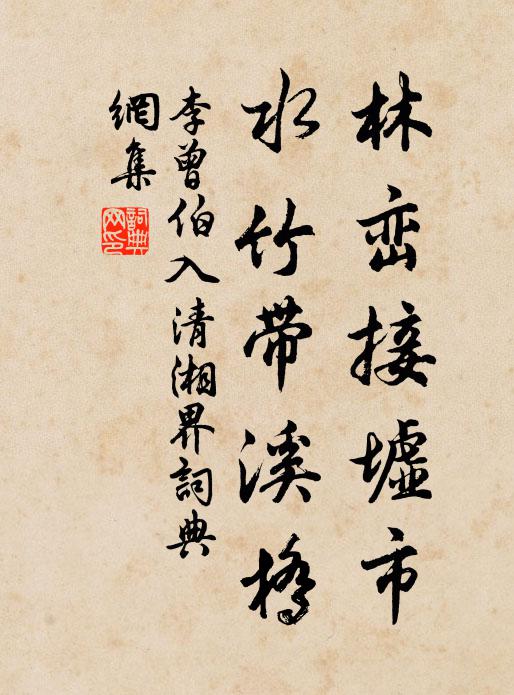 林峦接墟市
水竹带溪橋
李曾伯入清湘界詞典
網集
詞典
网印